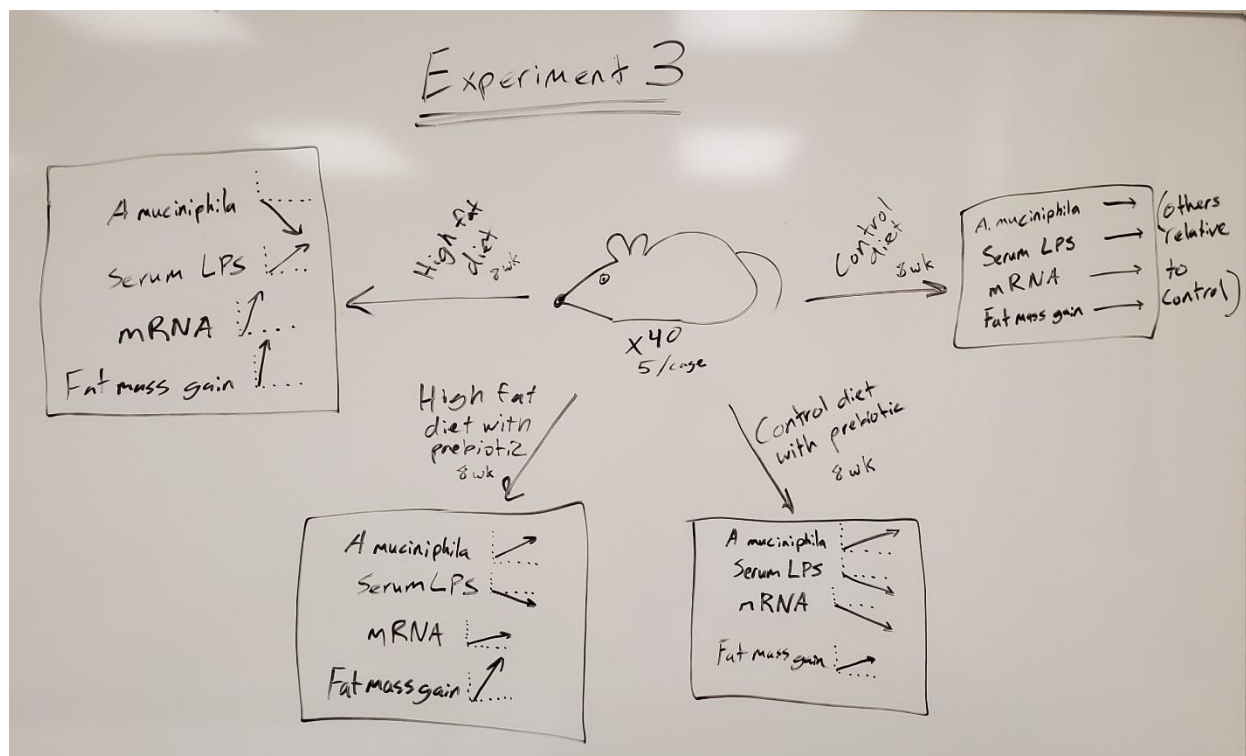 Experiment 3
A muciniphila
Serum LPS
mRNA
Fat mass gain
High fat
diet
8wk
Control
diet
8wk
A. muciniphila
Serum LPS
mRNA
Fat mass gain
(others
relative
to
control)
x40
5/cage
High fat
diet with
prebiotic
8wk
Control diet
with prebiotic
8 wk
A muciniphila
Serum LPS
mRNA
Fat mass gain
A muciniphila
Serum LPS
mRNA
Fat mass gain